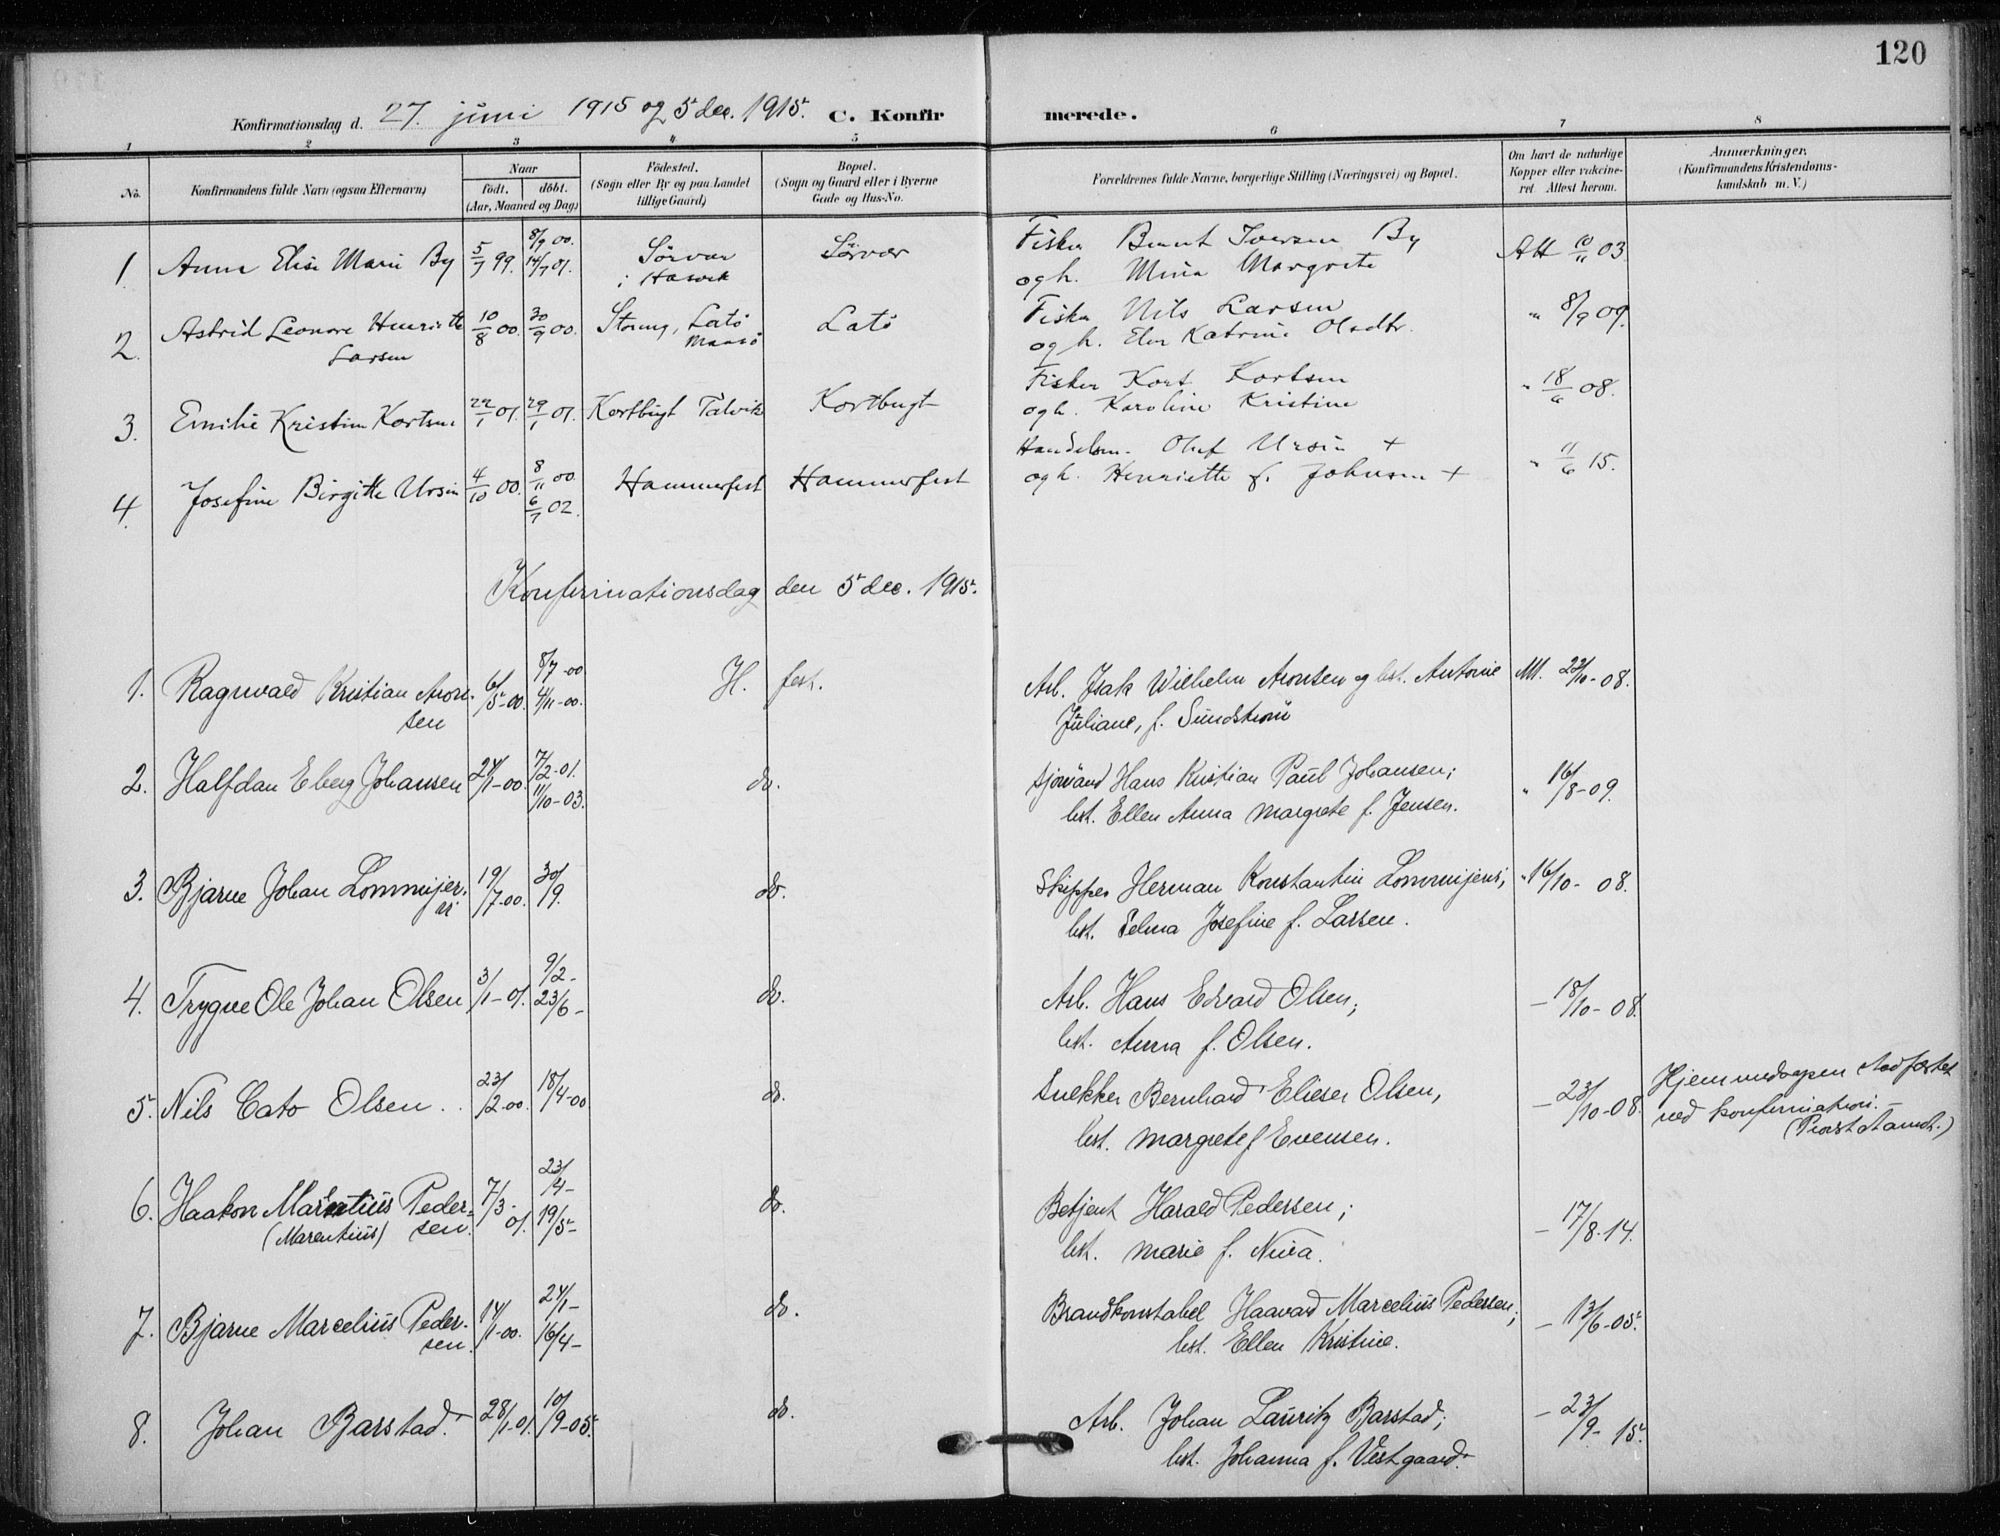 120
Konfirmationsdag d. 27. juni 1915 og 5 dec. 1915. C. Konfirmerede.
1 2 3 4 5 6 7 8
No. Konfirmandens fulde Navn (ogsaa Efternavn) Naar födt. döbt. (Aar, Maaned og Dag) Födested. (Sogn eller By og paa Landet tillige Gaard) Bopæl. (Sogn og Gaard eller i Byerne Gade og Hus-No. Forældrenes fulde Navne, borgerlige Stilling (Næringsvei) og Bopæl. Om havt de naturlige Kopper eller vakcineret. Attest herom. Anmærkninger. (Konfirmandens Kristendomskundskab m. V.)
1 Anna Elise Marie By 5/7 99. 8/9 00. 14/7 01. Sörvær i Hasvik Sörvær Fisker Bernt Iversen By Att 10/11 03.
og h. Mina Margrete
2. Astrid Leonore Henriette Larsen 10/8 00. 30/9 00. Latö Maasö Latö Fisker Nils Larsen " 8/9 09.
og h. Elen Katrine Olsdtr.
3. Emilie Kristine Kortsen 22/1 01. 29/1 01. Kortbugt Talvik Kortbugt Fisker Kort Kortsen " 18/6 08.
og h. Karoline Kristine
4. Josefine Birgitte Ursin 4/10 00. 8/11 00 6/7 02. Hammerfest Hammerfest Handelsm. Oluf Ursin + " 11/6 15.
og h. Henriette f. Johnsen +
Konfirmationsdag den 5 dec. 1915.
1. Ragnvald Kristian Aronsen 6/5-00. 8/7-00 4/11-00. H.fest. Arb. Isak Wilhelm Aronsen og hst. Antonie Att. 22/10-08.
Juliane, f. Sundström
2. Halfdan Eberg Johansen 24/1-00. 7/2-01. 11/10-03. do. Sjömand Hans Kristian Paul Johansen; " 16/8-09.
hst. Ellen Anna Margrete f. Jensen.
3. Bjarne Johan 19/7-00. 30/9. do. Skipper Herman Konstantin " 16/10-08.
hst. Selma Josefine f. Larsen.
4. Trygve Ole Johan Olsen 3/1-01. 9/2- 23/6- do. Arb. Hans Edvard Olsen; - 18/10-08.
hst. Anna f. Olsen.
5. Nils Cato Olsen. 23/2-00. 18/4-00 do. Snekker Bernhard Elieser Olsen, - 23/10-08. Hjemmedaapen stadfæstet
hst. Margrete f Evensen. ved konfirmation.
6. Haakon Marentius Pedersen. (Marentius) 7/3-01. 23/4- 19/5- do. Betjent Harald Pedersen; - 17/8-14.
hst. Marie f. Niva.
7. Bjarne Marcelius Pedersen. 14/1-00. 24/1- 16/4- do. Brandkonstabel Haavard Marcelius Pedersen; - 13/6-05.
hst. Ellen Kristine.
8. Johan Barstad. 28/1-01. 10/9-05. do. Arb. Johan Lauritz Barstad; - 23/9-15.
hst. Johanna f. Vestgaard.